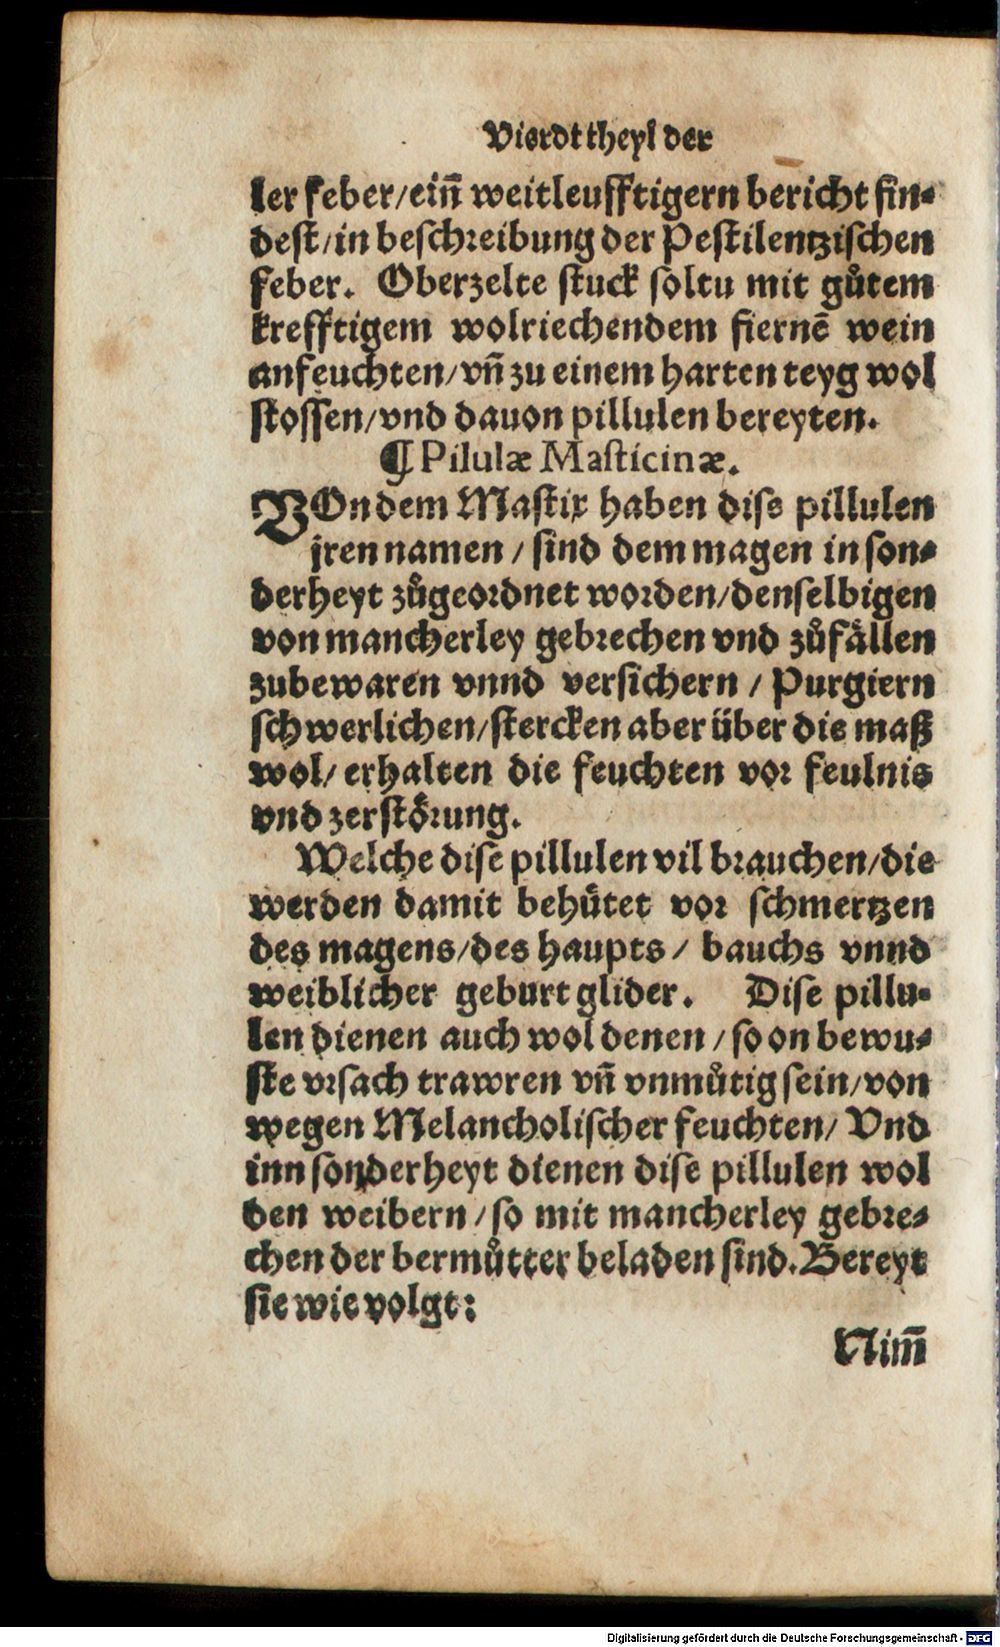 Vierdt theyl der
ler feber/einn̄ weitleufftigern bericht fin⸗
dest/in beschreibung der Pestilentzischen
feber. Oberzelte stuck soltu mit gůtem
krefftigem wolriechendem fiernē wein
anfeuchten/vn̄ zu einem harten teyg wol
stossen/vnd dauon pillulen bereyten.
¶ Pilulæ Masticinæ.
VOn dem Mastix haben dise pillulen
jren namen / sind dem magen in son⸗
derheyt zůgeordnet worden/denselbigen
von mancherley gebrechen vnd zůfällen
zubewaren vnnd versichern / Purgiern
schwerlichen/stercken aber über die maß
wol/ erhalten die feuchten vor feulnis
vnd zerstörung.
Welche dise pillulen vil brauchen/die
werden damit behütet vor schmertzen
des magens/des haupts / bauchs vnnd
weiblicher geburt glider. Dise pillu⸗
len dienen auch wol denen / so on bewu⸗
ste vrsach trawren vn̄ vnmůtig sein/von
wegen Melancholischer feuchten/ Vnd
inn sonderheyt dienen dise pillulen wol
den weibern / so mit mancherley gebre⸗
chen der bermůtter beladen sind. Bereyt
sie wie volgt:
Nim̄
Digitalisierung gefördert durch die Deutsche Forschungsgemeinschaft - DFG